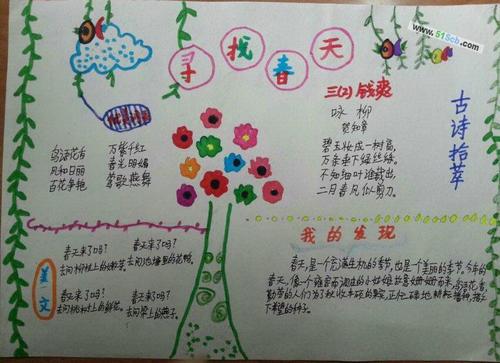 寻找春天
www.51Scb.com
三(2) 钱爽
咏柳
贺知章
碧玉妆成一树高,
万条垂下绿丝绦。
不知细叶谁裁出,
二月春风似剪刀。
古诗拾萃
鸟语花香 万紫千红
风和日丽 春光明媚
百花争艳 莺歌燕舞
美文
春天来了吗?
去问柳树上的嫩芽。
春天来了吗?
去问池塘里的花鸭。
春天来了吗?
去问桃树上的鲜花。
春天来了吗?
去问梁上的燕子。
我的发现
春天,是一个充满生机的季节,也是一个美丽的季节,今年的
春天,像一个
鸟语花香
勤劳的人们为了秋收丰硕的
耕种
下希望的种子。